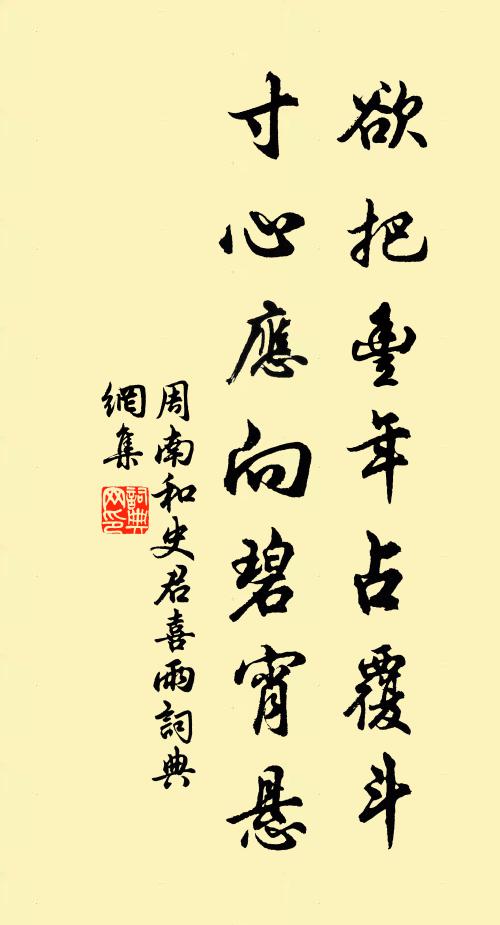 欲把豐年占覆斗
寸心應向碧宵悬
周南和史君喜雨詞典
網集
詞典
网印